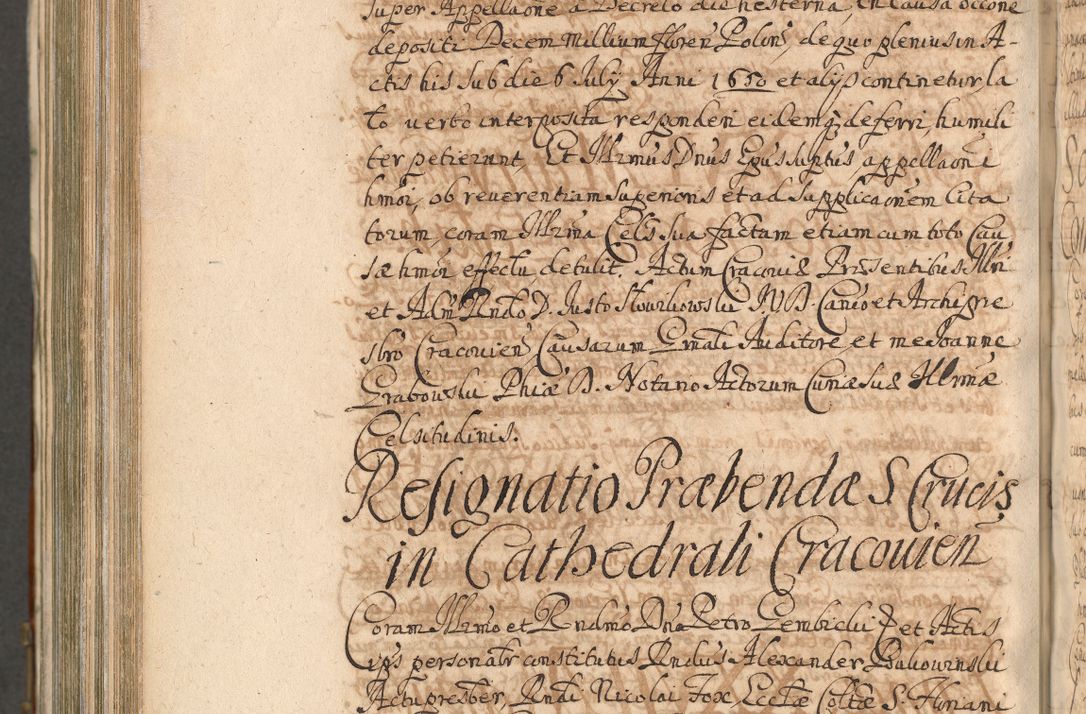 super Appellaone a Decreto die hesterna in causa occone
depositi Decem Millium floren Polon, de quo plenius in A-
ctis his sub die 6 July Anni 1650 et alys continetur, la
to verbo interposita responderi eidemq deferri, humili
ter petierunt, Et Illrmus Dnus Epus suptus, appellaoni
hmoi, ob reverentiam superioris et ad supplicaonem Cita
torum, coram Illrma Cels Sua factam etiam cum toto Cau
sæ hmoi effectu detulit. Actum Cracoviæ Præsentibus Illri
et Adm Rndo D. Justo Słowikowski J.V.D. Canco et Archipre
sbro Cracovien Causarum Gnali Auditore, et me Joanne
Grabowski Phiæ D. Notario Actorum Curiæ Suæ Illrmæ
Celsitudinis.
Resignatio Præbendæ S Crucis
in Cathedrali Cracovien
Coram Illrmo et Rndmo Dno Petro Gembicki et Actis
personalr constitutus Rndus Alexander
Actu presber, Rndi Nicolai Fox, Ecctæ Coltæ S. Floriani